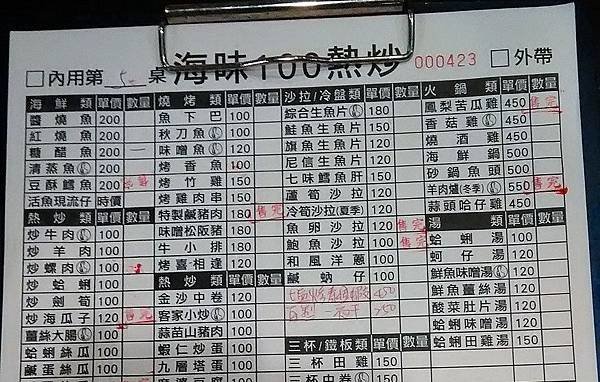 海味100熱炒
000423
內用第 5 桌
外帶
海鮮類 單價 數量
醬燒魚 200
紅燒魚 200
糖醋魚 200
清蒸魚 200
豆酥鱈魚 200
活魚現流仔 時價
熱炒類 單價 數量
炒牛肉 100
炒羊肉 100
炒螺肉 100
炒蛤蜊 100
炒劍筍 100
炒海瓜子 120
薑絲大腸 100
蛤蜊絲瓜 100
鹹蛋絲瓜 100
燒烤類 單價 數量
魚下巴 100
秋刀魚 100
味噌魚 120
烤香魚 100
烤竹雞 150
烤雞肉串 150
特製鹹豬肉 180 售完
味噌松阪豬 180
牛小排 180
烤喜相逢 120
熱炒類 單價 數量
金沙中卷 120
客家小炒 100
蒜苗山豬肉 100
蝦仁炒蛋 100
九層塔蛋 100
麻婆豆腐 100
沙拉/冷盤類 單價 數量
綜合生魚片 180
鮭魚生魚片 150
旗魚生魚片 120
尼信生魚片 120
七味鱈魚肝 150
蘆筍沙拉 120
冷筍沙拉(夏季) 120
魚卵沙拉 120 售完
鮑魚沙拉 100 售完
和風洋蔥 100
鹹蜆仔 100
三杯/鐵板類 單價 數量
三杯田雞 150
三杯中卷 150
火鍋類 單價 數量
鳳梨苦瓜雞 450 售完
香菇雞 450
燒酒雞 450
海鮮鍋 500
砂鍋魚頭 500
羊肉爐(冬季) 550 售完
蒜頭哈仔雞 450
湯類 單價 數量
蛤蜊湯 100
蚵仔湯 100
鮮魚味噌湯 120
鮮魚薑絲湯 120
酸菜肚片湯 120
蛤蜊味噌湯 120
蛤蜊田雞湯 150